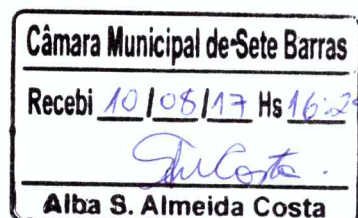 Câmara Municipal de Sete Barras
Recebi 10/08/17 Hs 16:2
Alba S. Almeida Costa